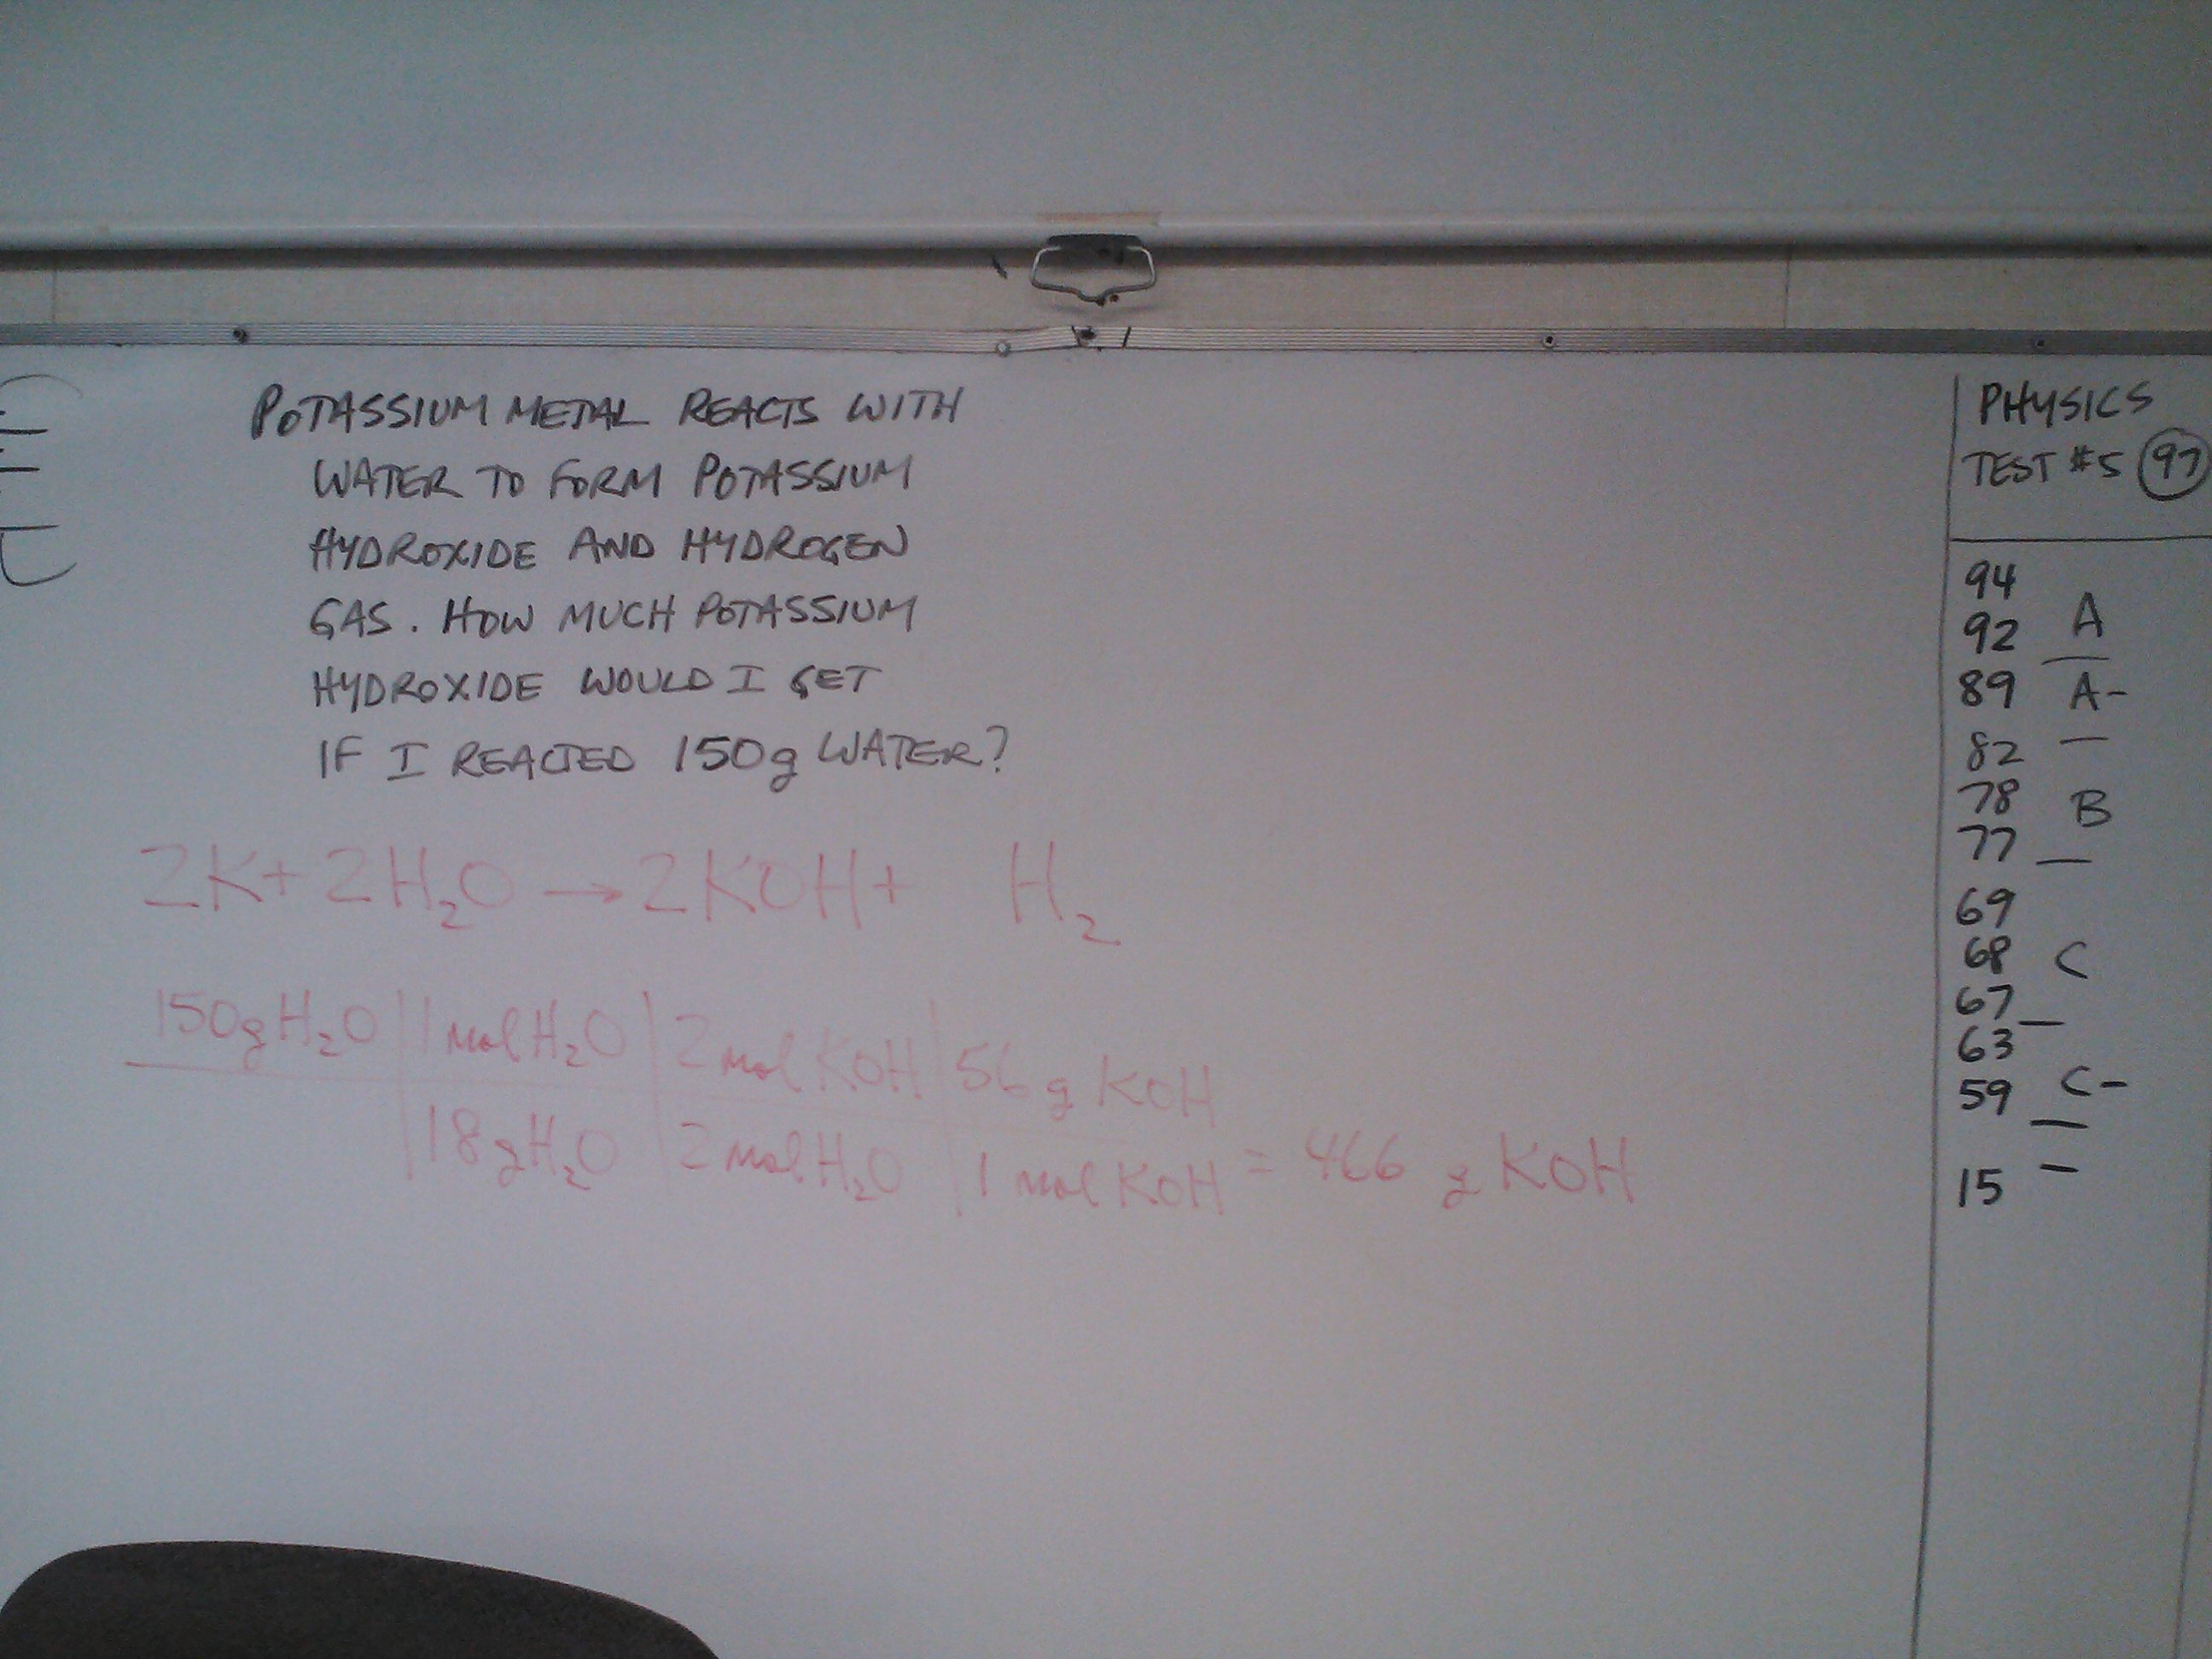 POTASSIUM METAL REACTS WITH
WATER TO FORM POTASSIUM
HYDROXIDE AND HYDROGEN
GAS. HOW MUCH POTASSIUM
HYDROXIDE WOULD I GET
IF I REACTED 150g WATER?
2K + 2H₂O → 2KOH + H₂
150g H₂O | 1 mol H₂O | 2 mol KOH | 56 g KOH
18 g H₂O | 2 mol H₂O | 1 mol KOH = 466 g KOH
PHYSICS
TEST #5 97
94
92 A
89 A-
82
78 B
77
69
68 C
67
63
59 C-
15 -